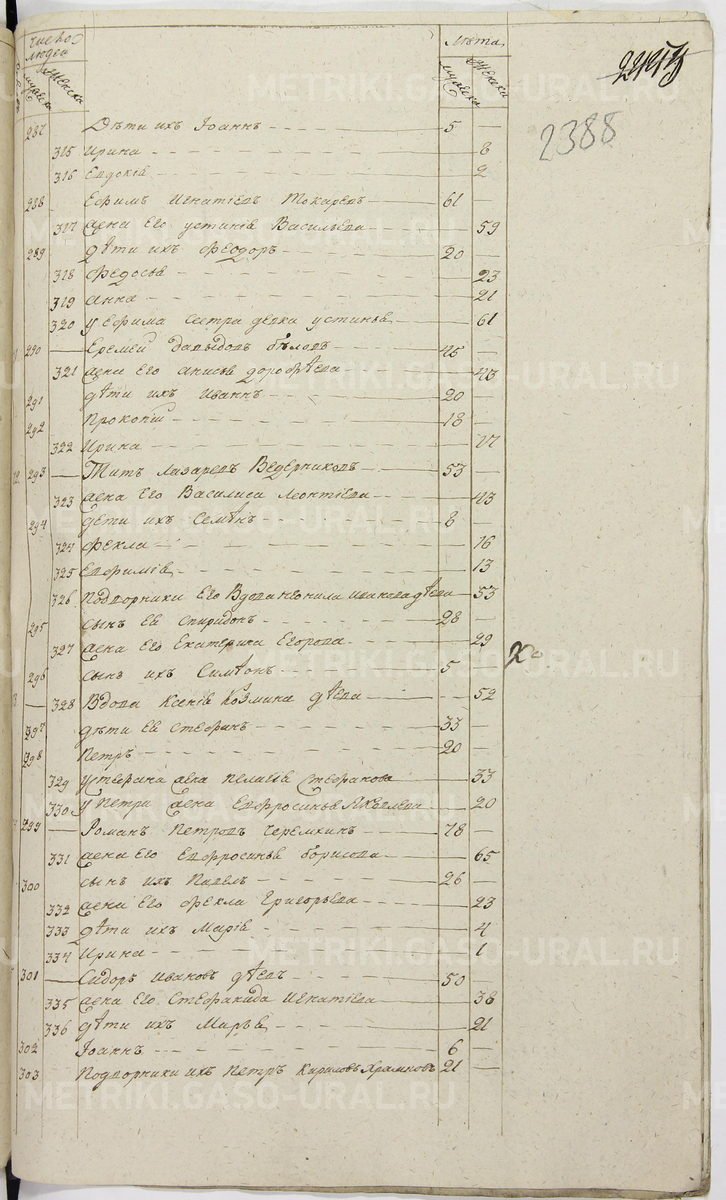 число людеи
мужеска женска
Лѣта
мужеска женска
2388
287 Дѣти ихъ Іоаннъ 5 —
315 Ирина — 8
316 Евдокія — 2
288 Ефимъ Игнатіевъ Токаревъ 61 —
317 жена Его устинія Васильева — 59
289 дѣти ихъ Феодоръ 20 —
318 Федосія — 23
319 Анна — 21
320 у Ефима сестра девка устинья — 61
290 Еремей Давыдовъ бѣловъ 45 —
321 жена Его Анисья дорофѣева — 43
291 дѣти ихъ Иваннъ 20 —
292 Прокопій 18 —
322 Ирина — 17
293 Титъ Лазаревъ Ведерниковъ 53 —
323 жена Его Василиса Леонтіева — 43
294 дѣти ихъ Семѣнъ 8 —
324 Фекла — 16
325 Евфимія — 13
326 Подворники Его Вдова неонила иванова дѣева — 53
295 сынъ Ея Спиридонъ 28 —
327 жена Его Екатерина Егорова — 29
296 сынъ ихъ Симеонъ 5 —
328 Вдова Ксенія Козмина дѣева — 52
297 дѣти Ея Стефанъ 33 —
298 Петръ 20 —
329 у Стефана жена Пелагія Стефанова — 33
330 у Петра Жена Евфросинья Яковлева — 20
299 Романъ Петровъ Черемхинъ 78 —
331 жена Его Евфросинья борисова — 65
300 сынъ ихъ Павелъ 26 —
332 жена Его Фекла Григорьева — 23
333 дѣти ихъ Марія — 4
334 Ирина — 1
301 Сидоръ Ивановъ дѣевъ 50 —
335 жена Его Стефанида Игнатіева — 38
336 дѣти ихъ Марѳа — 21
302 Іоаннъ 6 —
303 Подворники ихъ Петръ Кириловъ Храмковъ 21 —
METRIKI.GASO-URAL.RU